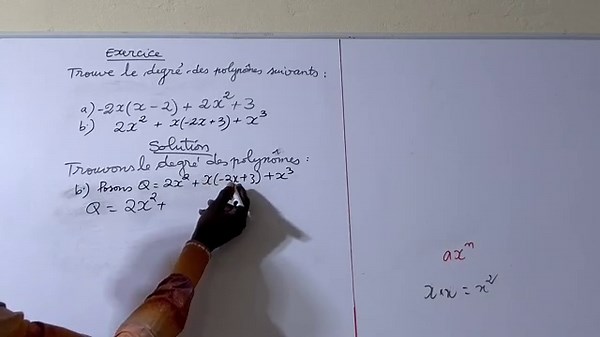 Exercice
Trouve le degré des polynômes suivants :
a) -2x(x-2) + 2x² + 3
b) 2x² + x(-2x+3) + x³
Solution
Trouvons le degré des polynômes :
b) Posons Q = 2x² + x(-2x+3) + x³
Q = 2x² +
axⁿ
x·x = x²